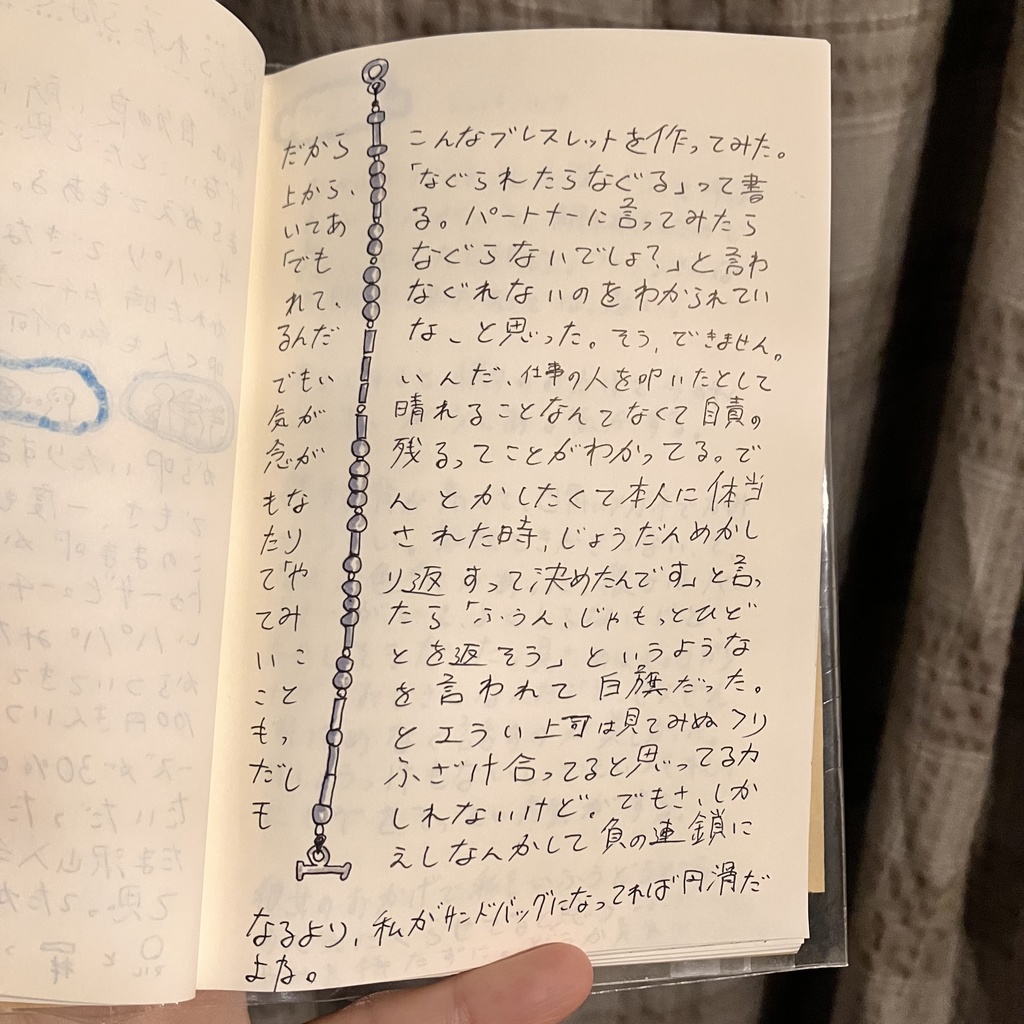 だから こんなブレスレットを作ってみた。
上から、「なぐられたらなぐる」って書
いてある。パートナーに言ってみたら
「でもなぐらないでしょ?」と言わ
れて、なぐれないのをわかられてい
るんだな、と思った。そう、できません。
でもいいんだ、仕事の人を叩いたとして
気が晴れることなんてなくて自責の
念が残るってことがわかってる。で
もなんとかしたくて本人に体当
たりされた時、じょうだんめかし
て「やり返すって決めたんです」と言っ
てみたら「ふうん、じゃもっとひど
いことを返そう」というような
ことを言われて白旗だった。
もっとエラい上司は見てみぬフリ
だしふざけ合ってると思ってるカ
モしれないけど。でもさ、しか
えしなんかして負の連鎖に
なるより、私がサンドバッグになってれば円滑だ
よな。